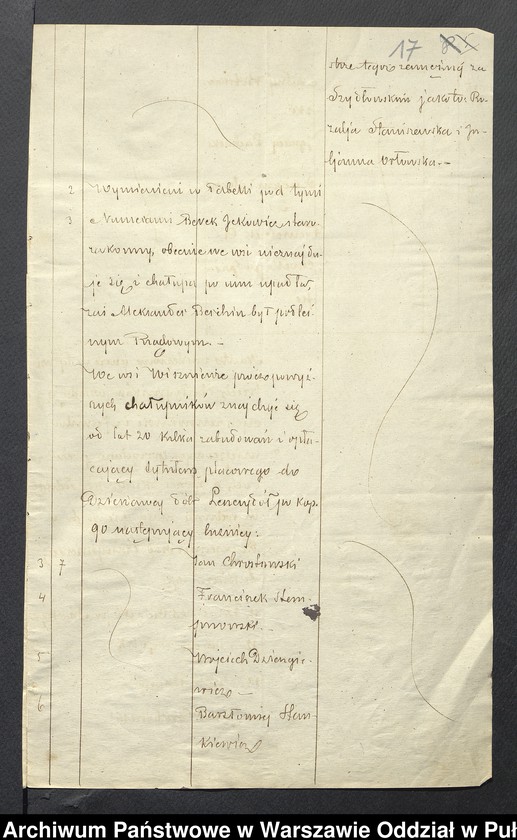 17
stre tegoż zamężną za
Szydłowskim jako to: Ro-
zalja Staniszewska i Ju-
ljanna Orłowska. —
2 Wymienieni w Tabelli pod tymi
3 Numerami Berek Jckowicz staro-
zakonny, obecnie we wsi nieznajdu-
je się i chałupa po nim upadła,
zaś Aleksander Berchin był podleś-
nym Rządowym. —
We wsi Wiszniewie prócz powyż-
szych chałupników znajduje się
od lat 20 kilka zabudowań i opła-
cający tytułem placowego do
Dzierżawcy dóbr po kop.
90 następujący luźnicy:
3 7 Jan Chrostowski
4 Franciszek Stem-
pnowski —
5 Wojciech Dziengie-
wicz —
6 Bartłomiej Sien-
kiewicz
Archiwum Państwowe w Warszawie Oddział w Puł